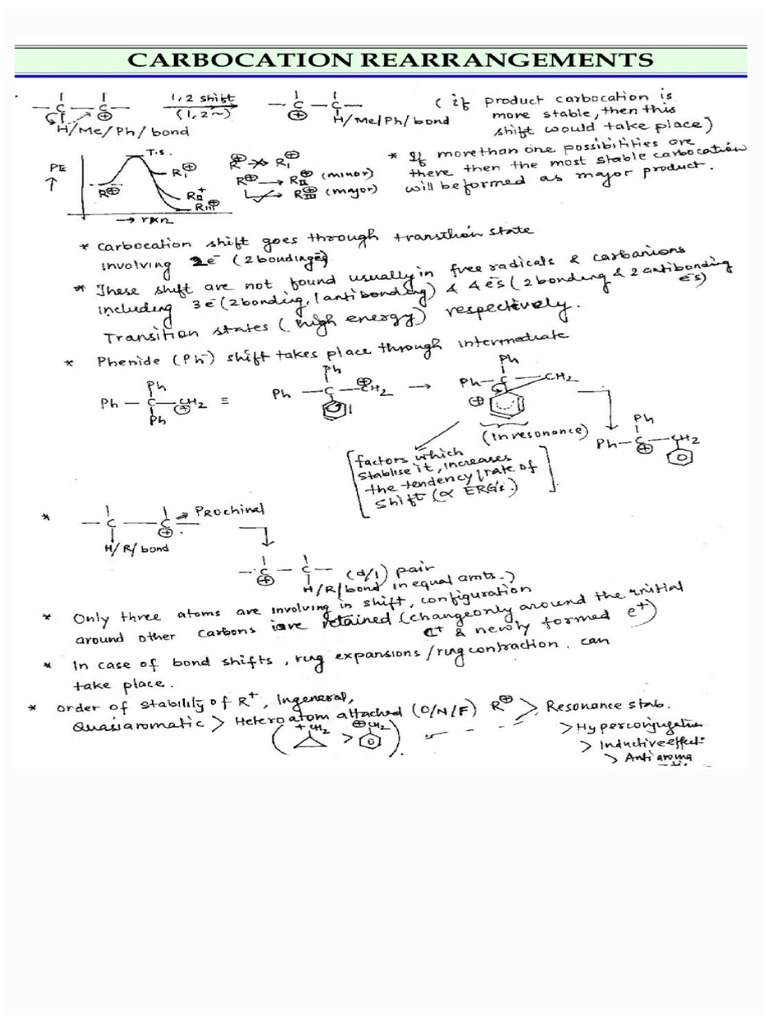 CARBOCATION REARRANGEMENTS
-C-C- 1,2 shift -C-C- (if product carbocation is
⊕ (1,2~) ⊕ more stable, then this
H/Me/Ph/bond H/Me/Ph/bond shift would take place)
PE T.S. R⊕ R⊕ R_I⊕ * If more than one possibilities are
R_I⊕ R⊕ → R_II⊕ (minor) there then the most stable carbocation
R_II+ R_III⊕ (major) will be formed as major product.
R_III⊕
→ rxn
* Carbocation shift goes through transition state
involving 2e⁻ (2 bonding e⁻s)
* These shift are not found usually in free radicals & carbanions
including 3e⁻ (2 bonding, 1 antibonding) & 4e⁻s (2 bonding & 2 antibonding e⁻s)
Transition states (high energy) respectively.
* Phenide (Ph⁻) shift takes place through intermediate
Ph Ph Ph
Ph-C-CH2 ≡ Ph-C-CH2 → Ph-C-CH2
⊕ ⊕ ⊕
Ph
(In resonance)
Ph
Ph-C-CH2
⊕
[factors which
stablise it, increases
the tendency/rate of
shift (∝ ERG's.)].
* -C-C- → Prochiral
⊕
H/R/bond
-C-C- (d/l) pair
⊕ H/R/bond in equal amts.)
* Only three atoms are involving in shift, configuration
around other carbons are retained (change only around the initial
C+ & newly formed C+)
* In case of bond shifts, ring expansions/ring contraction. can
take place.
* Order of stability of R+, In general,
Quasiaromatic > Heteroatom attached (O/N/F) R⊕ > Resonance stab.
(+CH2 > ⊕CH2). > Hyperconjugation
> Inductive effect
> Anti aroma